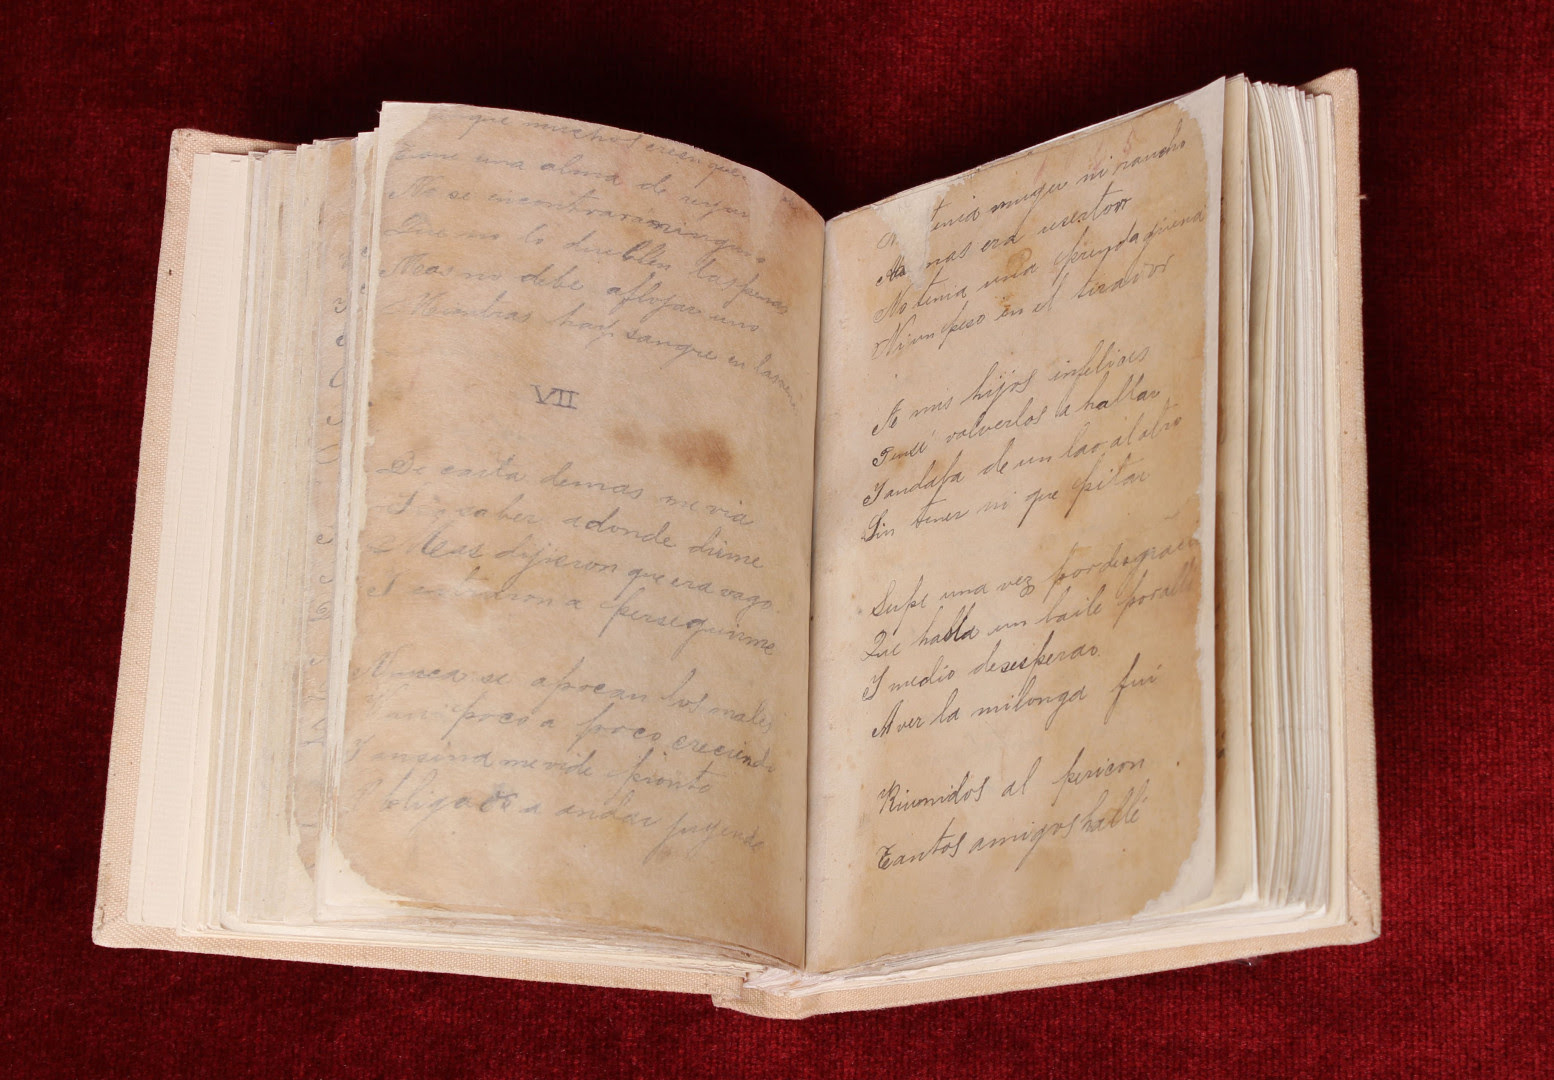 que muchos creen que
Tiene una alma de
No se encontrara ninguno
Que no lo dueblen las penas
Mas no debe aflojar uno
Mientras hay sangre en las vena
VII
De carta demas me via
Sin saber adonde dirme
Mas dijieron que era vago
I entraron a perseguirme
Nunca se apocan los males
Van poco a poco creciendo
Y ansina me vide pronto
Obligado a andar juyendo
tenia muger ni rancho
mas era resertor
No tenia una prenda güena
Ni un peso en el tirador
A mis hijos infelices
Pensé volverlos a hallar
I andaba de un lao al otro
Sin tener ni que pitar
Supe una vez por desgracia
Que habia un baile por alli
I medio desesperao
A ver la milonga fui
Riunidos al pericon
Tantos amigos hallé